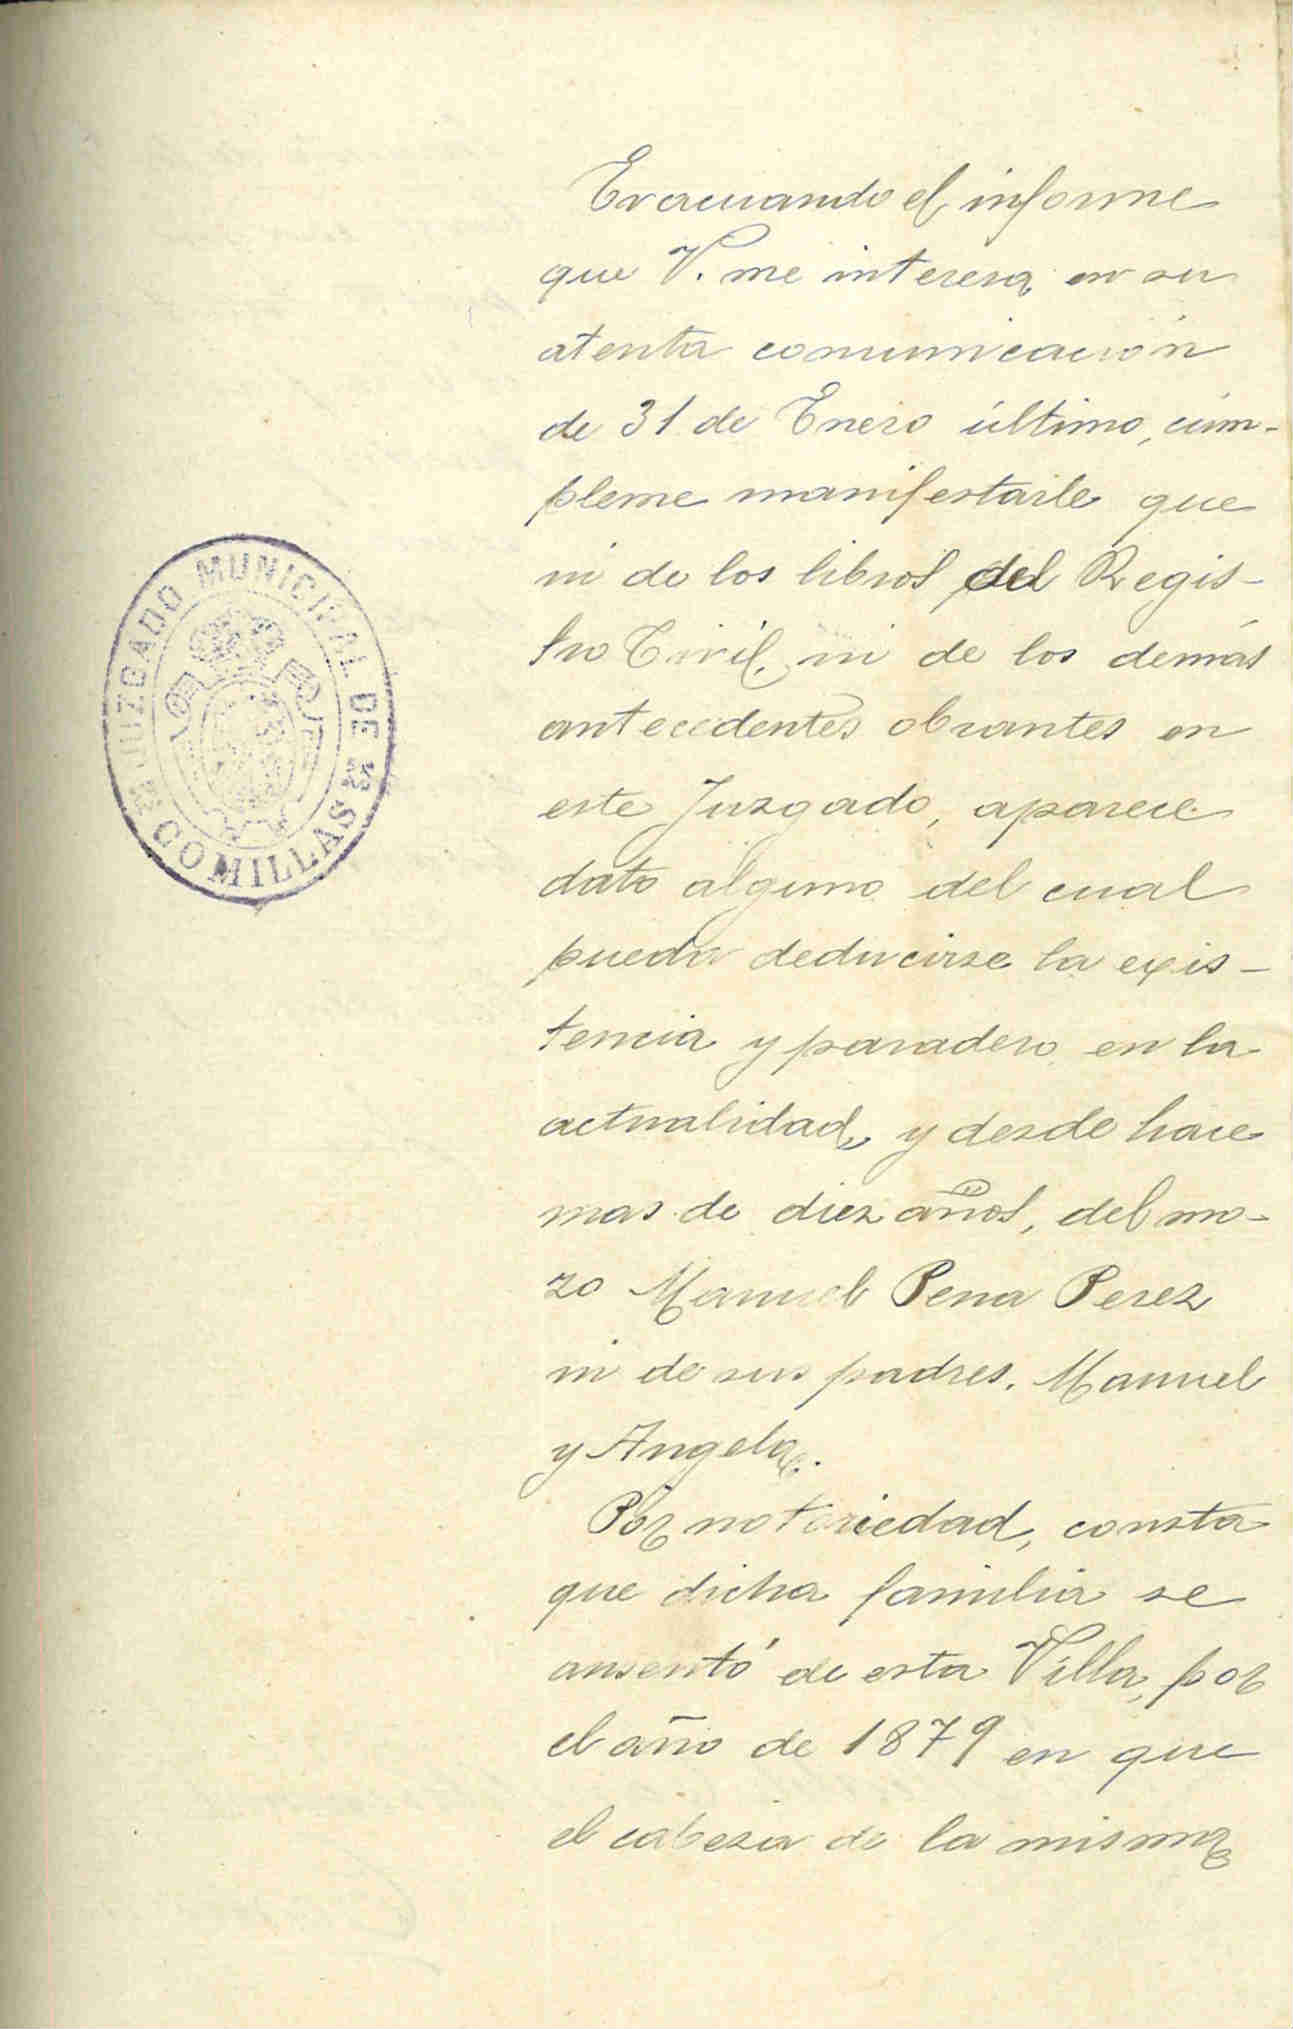 Evacuando el informe
que V. me interesa en su
atenta comunicación
de 31 de Enero último, cúm-
pleme manifestarle que
ni de los libros del Regis-
tro Civil, ni de los demás
antecedentes obrantes en
este Juzgado, aparece
dato alguno del cual
pueda deducirse la exis-
tencia y paradero en la
actualidad, y desde hace
mas de diez años, del mo-
zo Manuel Pena Perez
ni de sus padres, Manuel
y Angela.
Por notoriedad, consta
que dicha familia se
ausentó de esta Villa, por
el año de 1879 en que
el cabeza de la misma
JUZGADO MUNICIPAL DE
COMILLAS